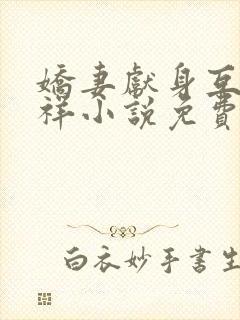 嬌妻獻身互
祥小說免費
白衣妙手書生